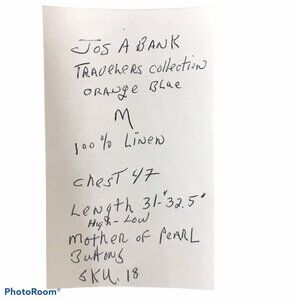 Jos A BANK
TRAVELERS collection
ORANGE Blue
M
100% Linen
chest 47
Length 31-"32.5"
High-Low
mother of PEARL
Buttons
SKU. 18
PhotoRoom®